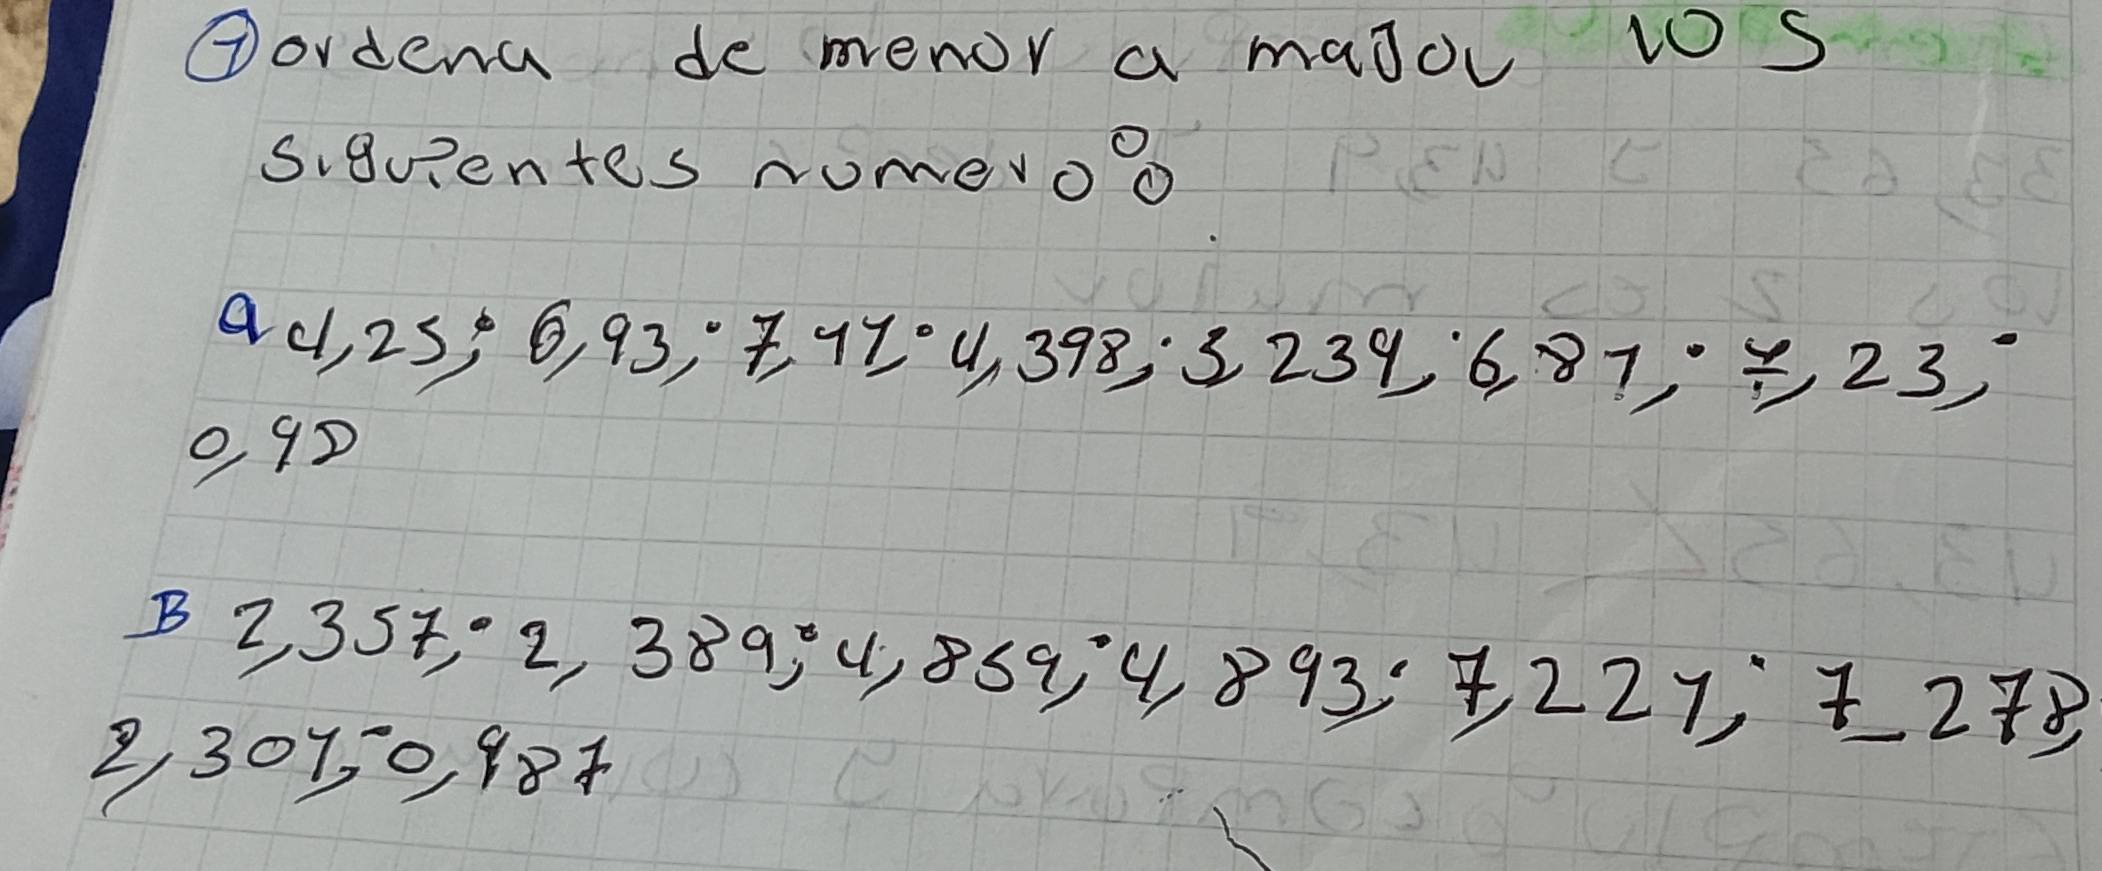 7 ordena de menor a major los
siguientes numero:
a 4,25; 6,93; 7,41; 4,398; 3,234; 6,81; 7,23;
0,98
B 2,357; 2,389; 4,859; 4,893; 7,221; 7,278;
2,301; 0,987